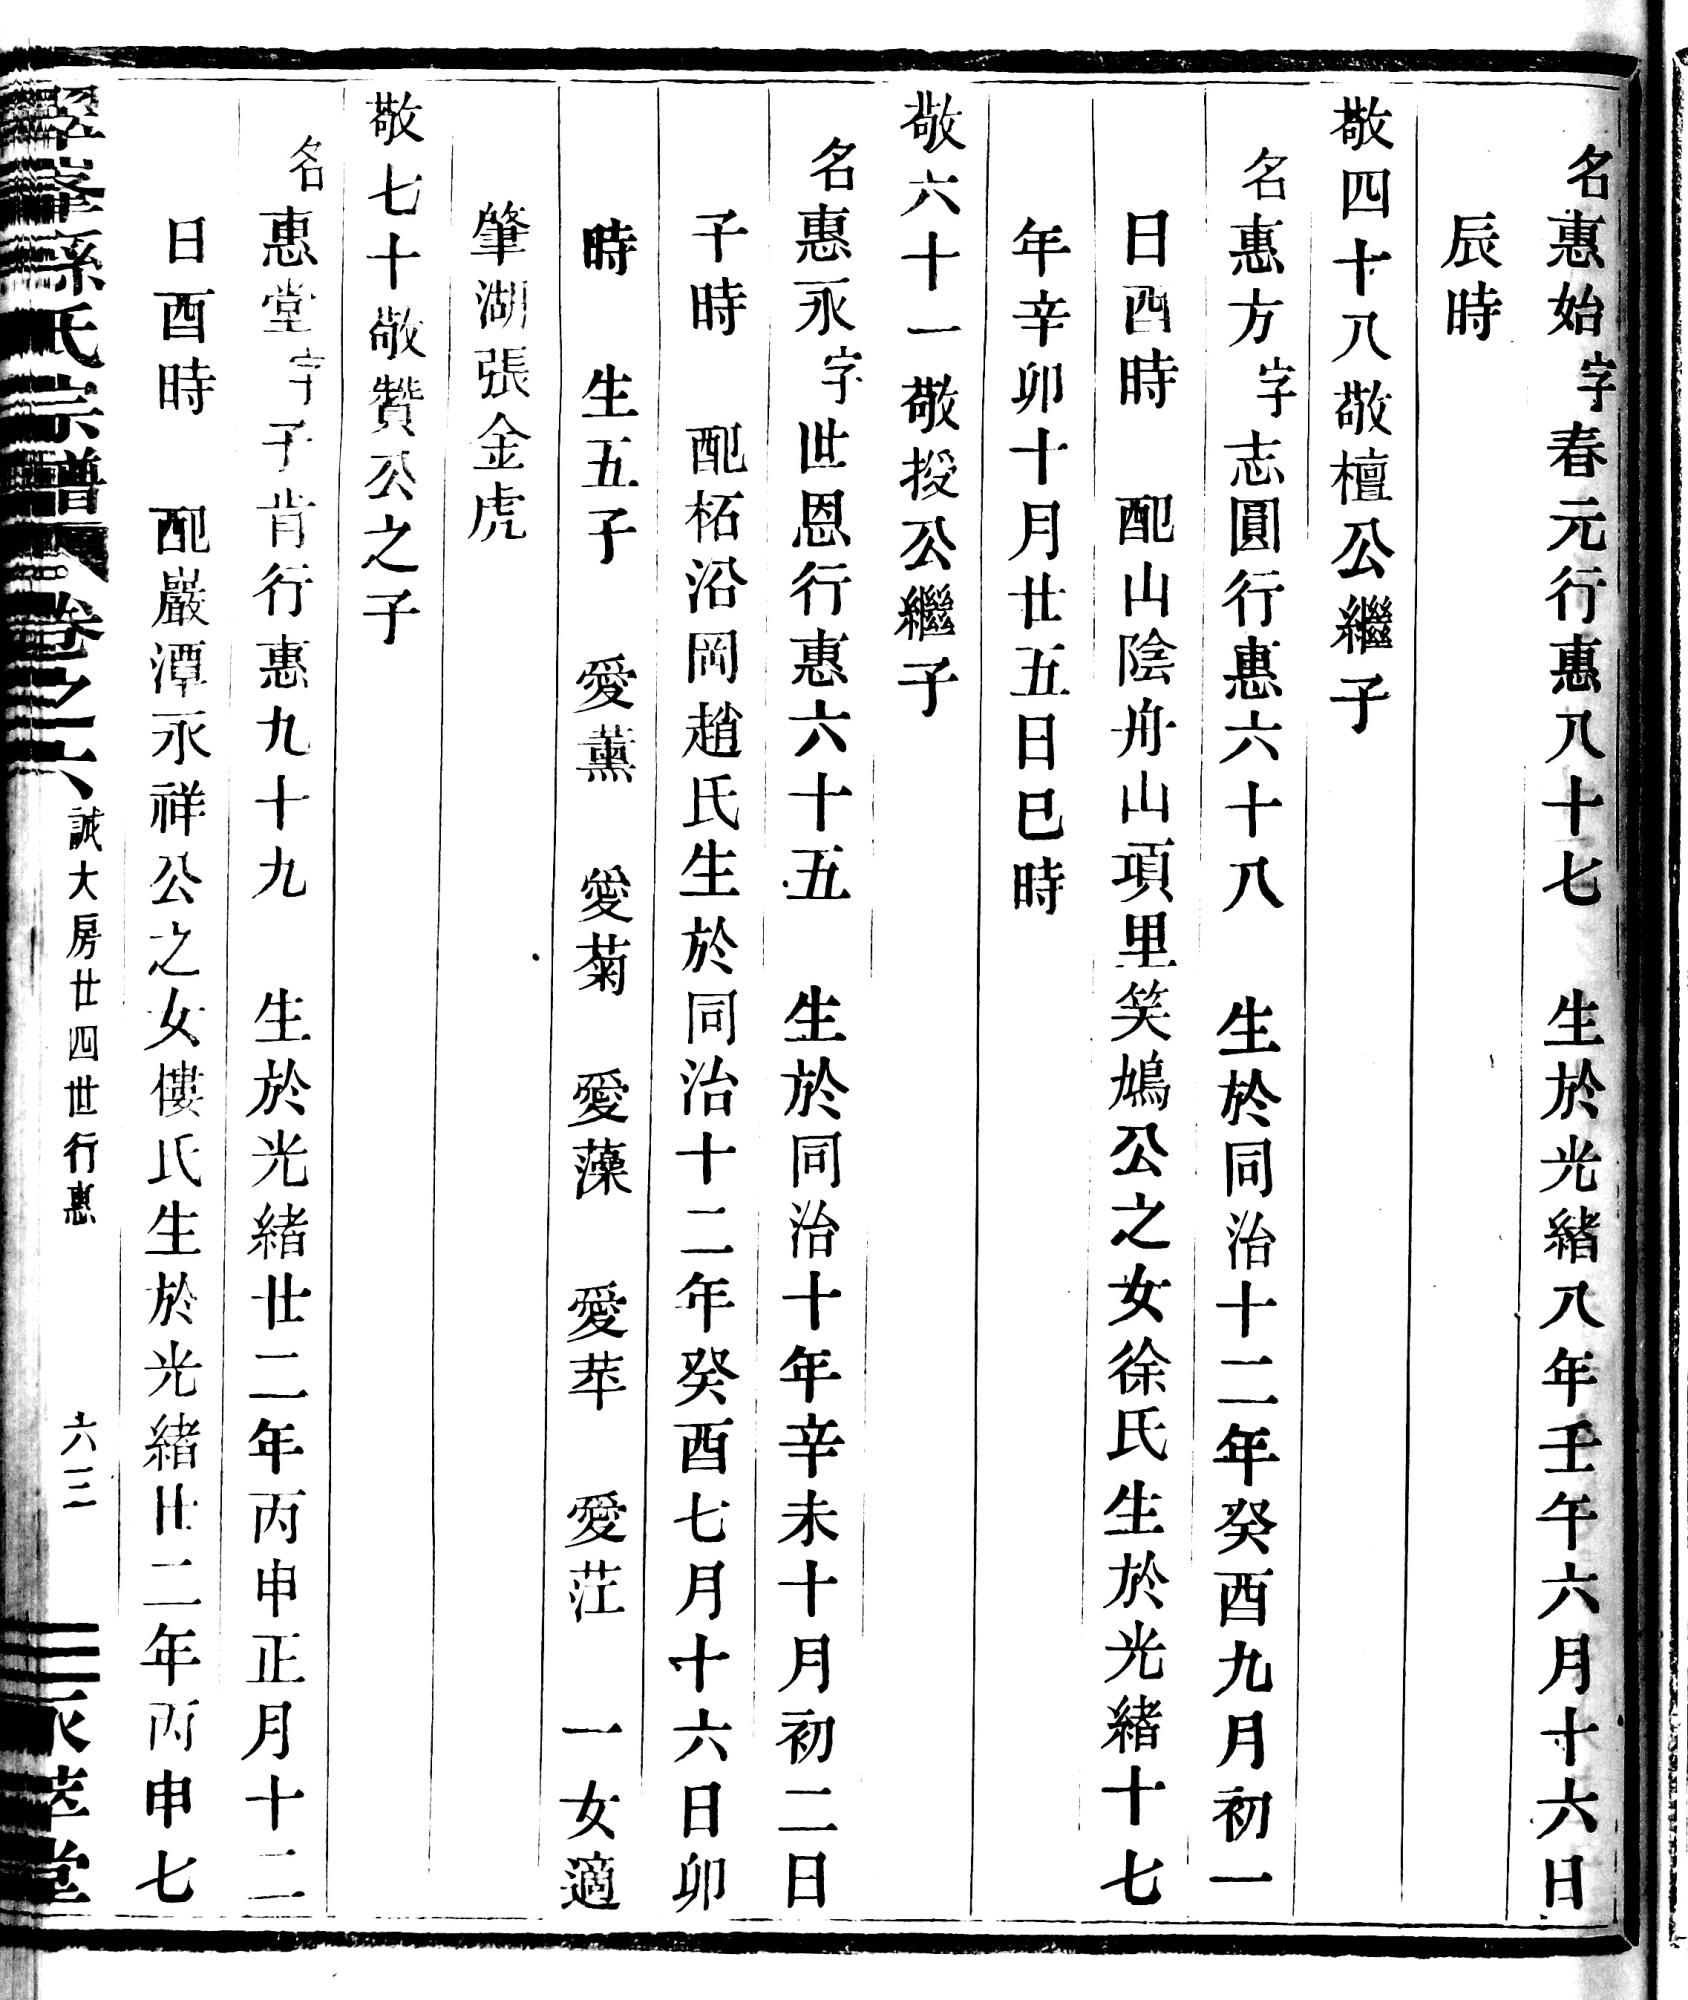 名惠始字春元行惠八十七　生於光緒八年壬午六月十六日
辰時
敬四十八敬檀公繼子
名惠方字志圓行惠六十八　生於同治十二年癸酉九月初一
日酉時　配山陰舟山項里笑鳩公之女徐氏生於光緒十七
年辛卯十月廿五日巳時
敬六十一敬授公繼子
名惠永字世恩行惠六十五　生於同治十年辛未十月初二日
子時　配柘沿岡趙氏生於同治十二年癸酉七月十六日卯
時　生五子　愛薰　愛菊　愛藻　愛苹　愛茳　一女適
肇湖張金虎
敬七十敬贊公之子
名惠堂字子肯行惠九十九　生於光緒廿二年丙申正月十二
日酉時　配嚴潭永祥公之女僂氏生於光緒廿二年丙申七
孫氏宗譜　卷之六　誠大房廿四世行惠　六三　永萃堂